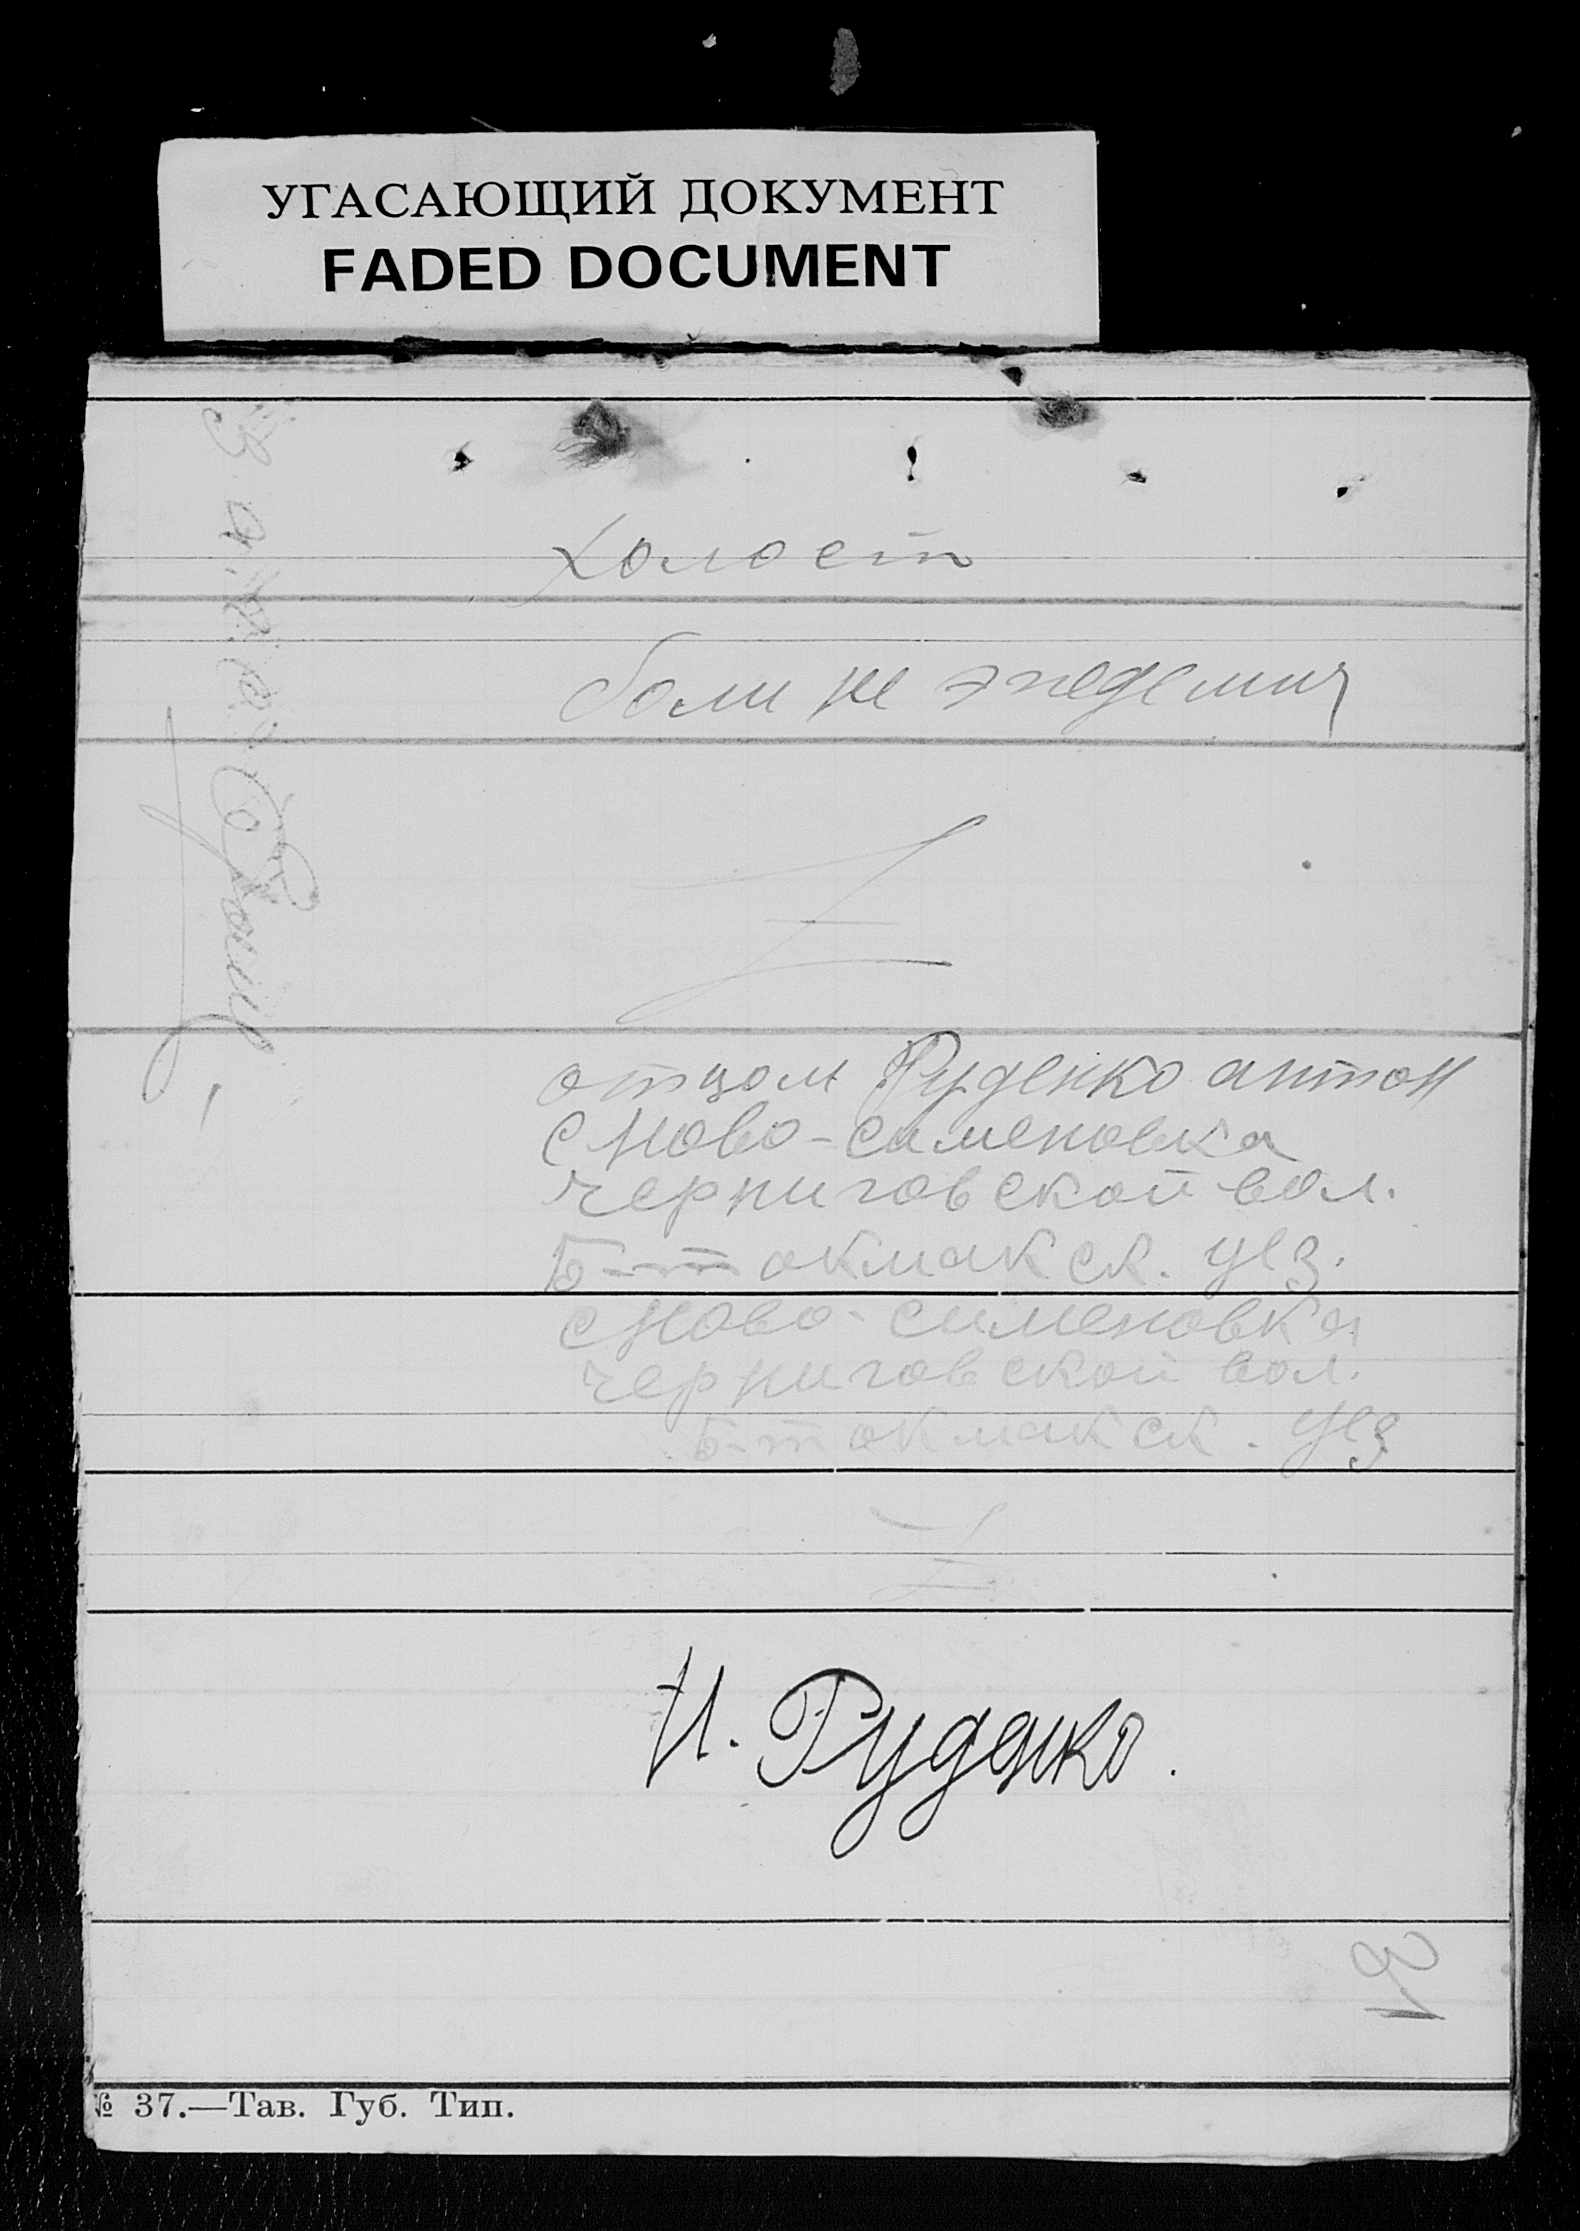 УГАСАЮЩИЙ ДОКУМЕНТ
FADED DOCUMENT
холост
боли не эпедемич
Z
отцом Руденко антон
с Ново-семеновка
черниговской вол.
Б-токмакск. уез.
с Ново-сименовка
черниговской вол.
Б-токмакск. уез
Z
И. Руденко.
31
№ 37.—Тав. Губ. Тип.